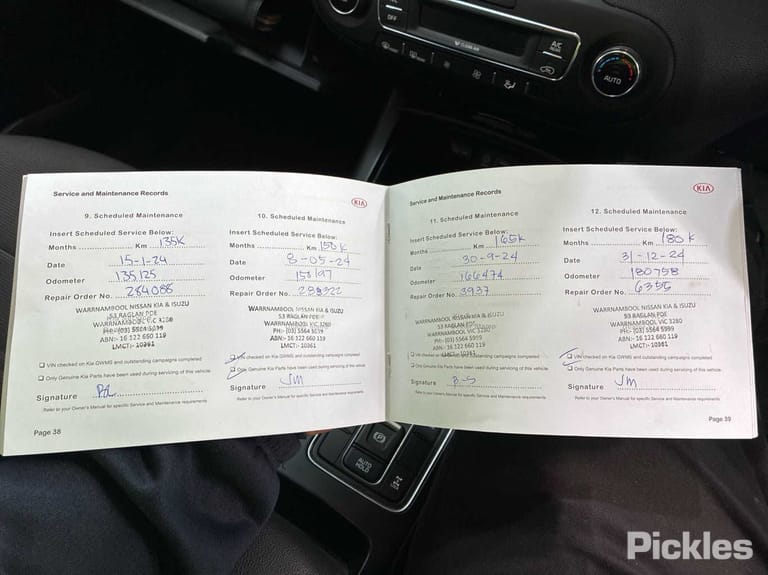 OFF
CLEAN AIR
A/C
AUTO
Service and Maintenance Records
KIA
9. Scheduled Maintenance
Insert Scheduled Service Below:
Months ........ Km 135K
Date 15-1-24
Odometer 135125
Repair Order No. 284088
WARRNAMBOOL NISSAN KIA & ISUZU
53 RAGLAN PDE
WARRNAMBOOL VIC 3280
PH:- (03) 5564 5999
ABN:- 16 122 660 119
LMCT:- 10361
VIN checked on Kia GWMS and outstanding campaigns completed
Only Genuine Kia Parts have been used during servicing of this vehicle
Signature
Refer to your Owner's Manual for specific Service and Maintenance requirements
Page 38
10. Scheduled Maintenance
Insert Scheduled Service Below:
Months ........ Km 150K
Date 8-05-24
Odometer 153197
Repair Order No. 288322
WARRNAMBOOL NISSAN KIA & ISUZU
53 RAGLAN PDE
WARRNAMBOOL VIC 3280
PH:- (03) 5564 5999
ABN:- 16 122 660 119
LMCT:- 10361
VIN checked on Kia GWMS and outstanding campaigns completed
Only Genuine Kia Parts have been used during servicing of this vehicle
Signature JM
Refer to your Owner's Manual for specific Service and Maintenance requirements
Service and Maintenance Records
KIA
11. Scheduled Maintenance
Insert Scheduled Service Below:
Months ........ Km 165K
Date 30-9-24
Odometer 166474
Repair Order No. 3937
WARRNAMBOOL NISSAN KIA & ISUZU
53 RAGLAN PDE
WARRNAMBOOL VIC 3280
PH:- (03) 5564 5999
ABN:- 16 122 660 119
LMCT:- 10361
VIN checked on Kia GWMS and outstanding campaigns completed
Only Genuine Kia Parts have been used during servicing of this vehicle
Signature B-S
Refer to your Owner's Manual for specific Service and Maintenance requirements
12. Scheduled Maintenance
Insert Scheduled Service Below:
Months ........ Km 180K
Date 31-12-24
Odometer 180758
Repair Order No. 6355
WARRNAMBOOL NISSAN KIA & ISUZU
53 RAGLAN PDE
WARRNAMBOOL VIC 3280
PH:- (03) 5564 5999
ABN:- 16 122 660 119
LMCT:- 10361
VIN checked on Kia GWMS and outstanding campaigns completed
Only Genuine Kia Parts have been used during servicing of this vehicle
Signature JM
Refer to your Owner's Manual for specific Service and Maintenance requirements
Page 39
AUTO
HOLD
Pickles